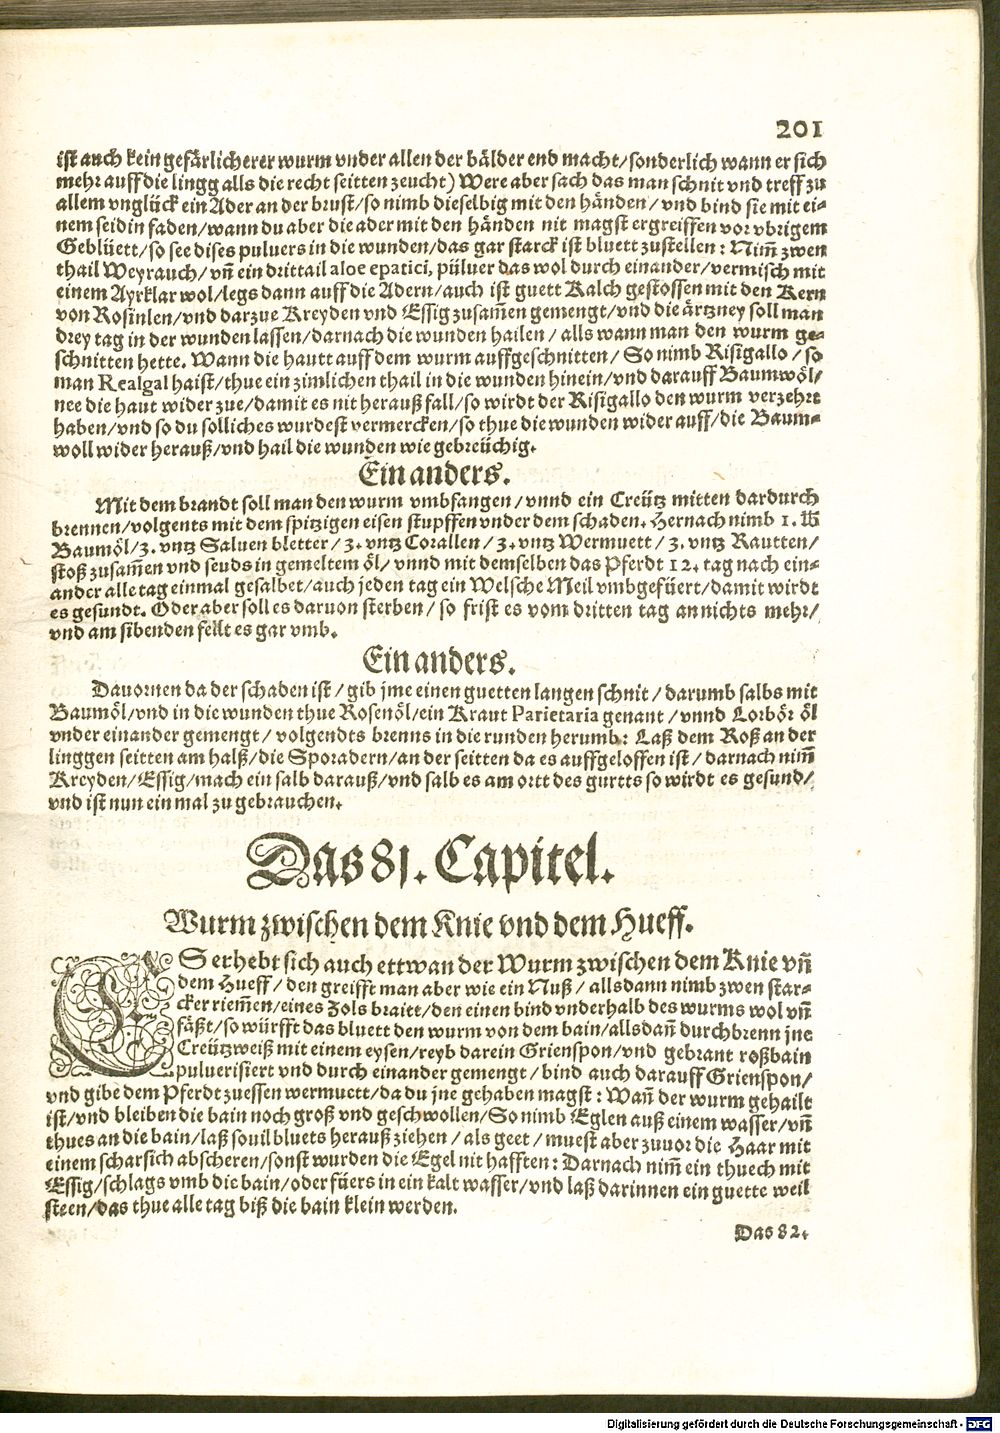 201
ist auch kein gefärlicherer wurm vnder allen der bälder end macht/sonderlich wann er sich
mehr auff die lingg alls die recht seitten zeucht) Were aber sach das man schnit vnd treff zu
allem vnglück ein Ader an der brust/so nimb dieselbig mit den händen/vnd bind sie mit ei-
nem seidin faden/wann du aber die ader mit den händen nit magst ergreiffen vor vbrigem
Geblüett/so see dises puluers in die wunden/das gar starck ist bluett zustellen: Nim̃ zwen
thail Weyrauch/vñ ein drittail aloe epatici, pülver das wol durch einander/vermisch mit
einem Ayrklar wol/legs dann auff die Adern/auch ist guett Kalch gestossen mit den Kern
von Rosinlen/vnd darzue Kreyden vnd Essig zusam̃en gemengt/vnd die ärtzney soll man
drey tag in der wunden lassen/darnach die wunden hailen/alls wann man den wurm ge-
schnitten hette. Wann die hautt auff dem wurm auffgeschnitten/So nimb Risigallo/so
man Realgal haist/thue ein zimlichen thail in die wunden hinein/vnd darauff Baumwöl/
nee die haut wider zue/damit es nit herauß fall/so wirdt der Risigallo den wurm verzehrt
haben/vnd so du solliches wurdest vermercken/so thue die wunden wider auff/die Baum-
woll wider herauß/vnd hail die wunden wie gebreüchig.
Ein anders.
Mit dem brandt soll man den wurm vmbfangen/vnnd ein Creütz mitten dardurch
brennen/volgents mit dem spitzigen eisen stupffen vnder dem schaden. Hernach nimb 1. ℔
Baumöl/3. vntz Saluen bletter/3. vntz Corallen/3. vntz Wermuett/3. vntz Rautten/
stoß zusam̃en vnd seuds in gemeltem öl/vnnd mit demselben das Pferdt 12. tag nach ein-
ander alle tag einmal gesalbet/auch jeden tag ein Welsche Meil vmbgefüert/damit wirdt
es gesundt. Oder aber soll es daruon sterben/so frist es vom dritten tag an nichts mehr/
vnd am sibenden fellt es gar vmb.
Ein anders.
Dauornen da der schaden ist/gib jme einen guetten langen schnit/darumb salbs mit
Baumöl/vnd in die wunden thue Rosenöl/ein Kraut Parietaria genant/vnnd Lorbör öl
vnder einander gemengt/volgendts brenns in die runden herumb: Laß dem Roß an der
linggen seitten am halß/die Sporadern/an der seitten da es auffgeloffen ist/darnach nim̃
Kreyden/Essig/mach ein salb darauß/vnd salb es am ortt des gurtts so wirdt es gesund/
vnd ist nun ein mal zu gebrauchen.
Das 81. Capitel.
Wurm zwischen dem Knie vnd dem Hueff.
ES erhebt sich auch ettwan der Wurm zwischen dem Knie vñ
dem Hueff/den greifft man aber wie ein Nuß/allsdann nimb zwen star-
cker riem̃en/eines Zols braitt/den einen bind vnderhalb des wurms wol vñ
fäßt/so würfft das bluett den wurm von dem bain/allsdañ durchbrenn jne
Creützweiß mit einem eysen/reyb darein Grienspon/vnd gebrant roßbain
puluerisiert vnd durch einander gemengt/bind auch darauff Grienspon/
vnd gibe dem Pferdt zuessen wermuett/da du jne gehaben magst: Wañ der wurm gehailt
ist/vnd bleiben die bain noch groß vnd geschwollen/So nimb Eglen auß einem wasser/vñ
thues an die bain/laß souil bluets herauß ziehen/als geet/muest aber zuuor die Haar mit
einem scharsich abscheren/sonst wurden die Egel nit hafften: Darnach nim̃ ein thuech mit
Essig/schlags vmb die bain/oder füers in ein kalt wasser/vnd laß darinnen ein guette weil
steen/das thue alle tag biß die bain klein werden.
Das 82.
Digitalisierung gefördert durch die Deutsche Forschungsgemeinschaft - DFG